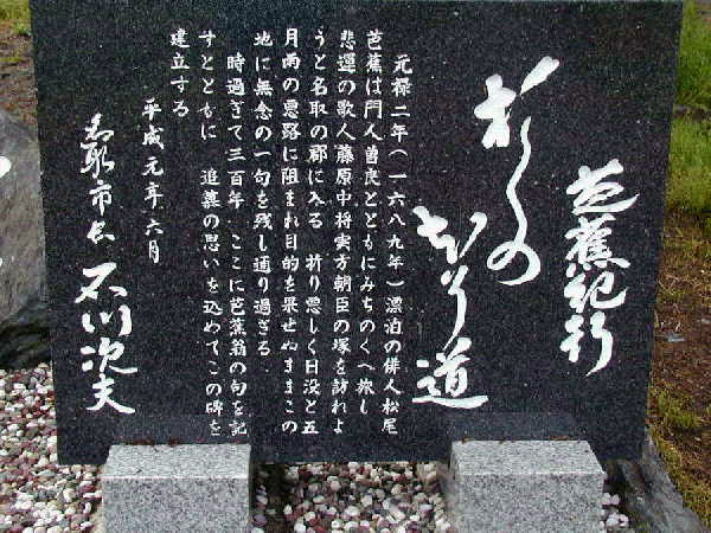 芭蕉紀行
おくの
ほそ道
元禄二年(一六八九年)漂泊の俳人松尾
芭蕉は門人曽良とともにみちのくへ旅し
悲運の歌人藤原中将実方朝臣の塚を訪れよ
うと名取の郡に入る 折り悪しく日没と五
月雨の悪路に阻まれ目的を果せぬままこの
地に無念の一句を残し通り過ぎる.
時過ぎて三百年 ここに芭蕉翁の句を記
すとともに 追慕の思いを込めてこの碑を
建立する
平成元年六月
名取市長 石川次夫